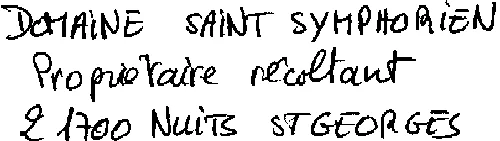 DOMAINE SAINT SYMPHORIEN
Propriétaire récoltant
21700 NUITS ST GEORGES